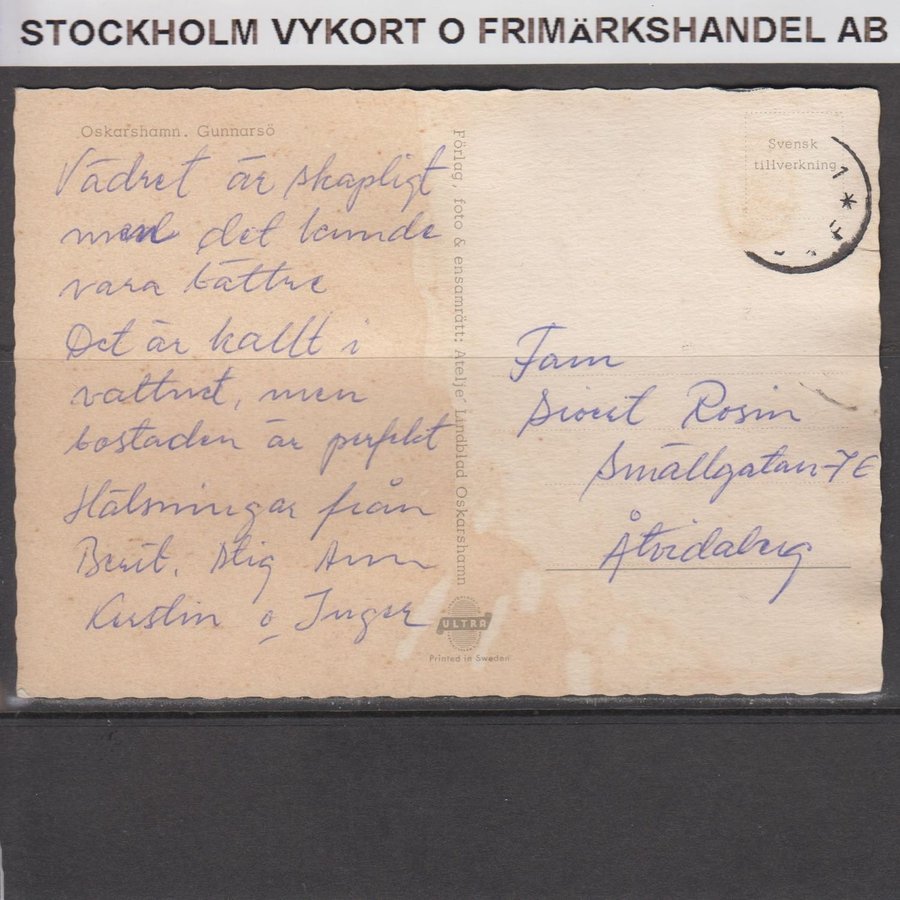 STOCKHOLM VYKORT O FRIMÄRKSHANDEL AB
Oskarshamn. Gunnarsö
Vädret är skapligt
men det kunde
vara bättre
Det är kallt i
vattnet, men
bostaden är perfekt
Hälsningar från
Berit, Stig Ann
Kerstin o Inger
Förlag, foto & ensamrätt: Ateljé Lindblad Oskarshamn
ULTRA
Printed in Sweden
Svensk
tillverkning
Fam
Sivert Rosin
Smällgatan 7E
Åtvidaberg